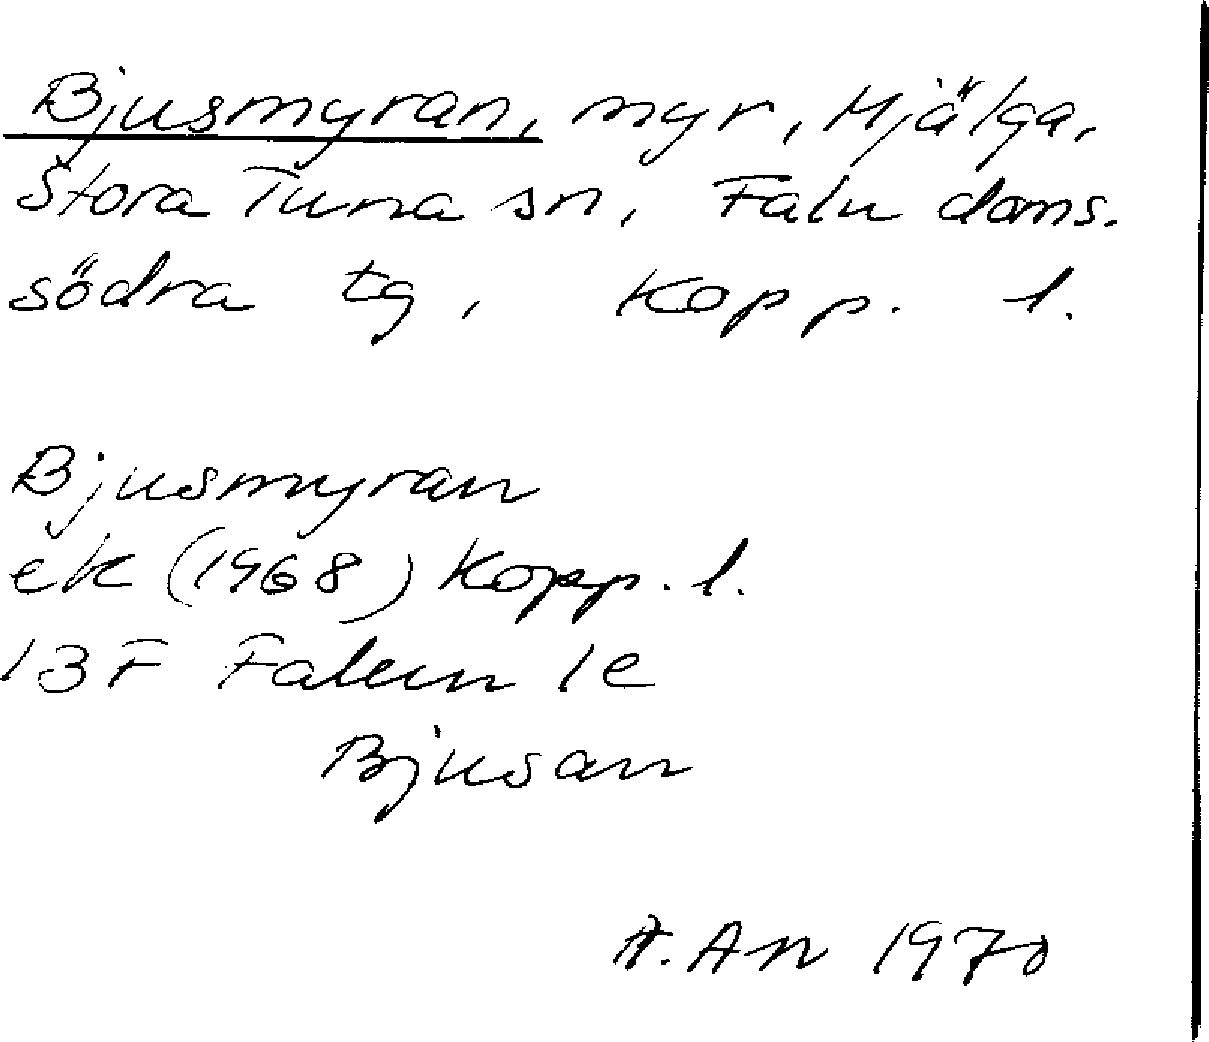 Bjusmyran, myr, Hjälga,
Stora Tuna sn, Falu doms.
södra tg, Kopp. l.
Bjusmyran
ek (1968) Kopp. l.
13F Falun 1e
Bjusan
A. An 1970